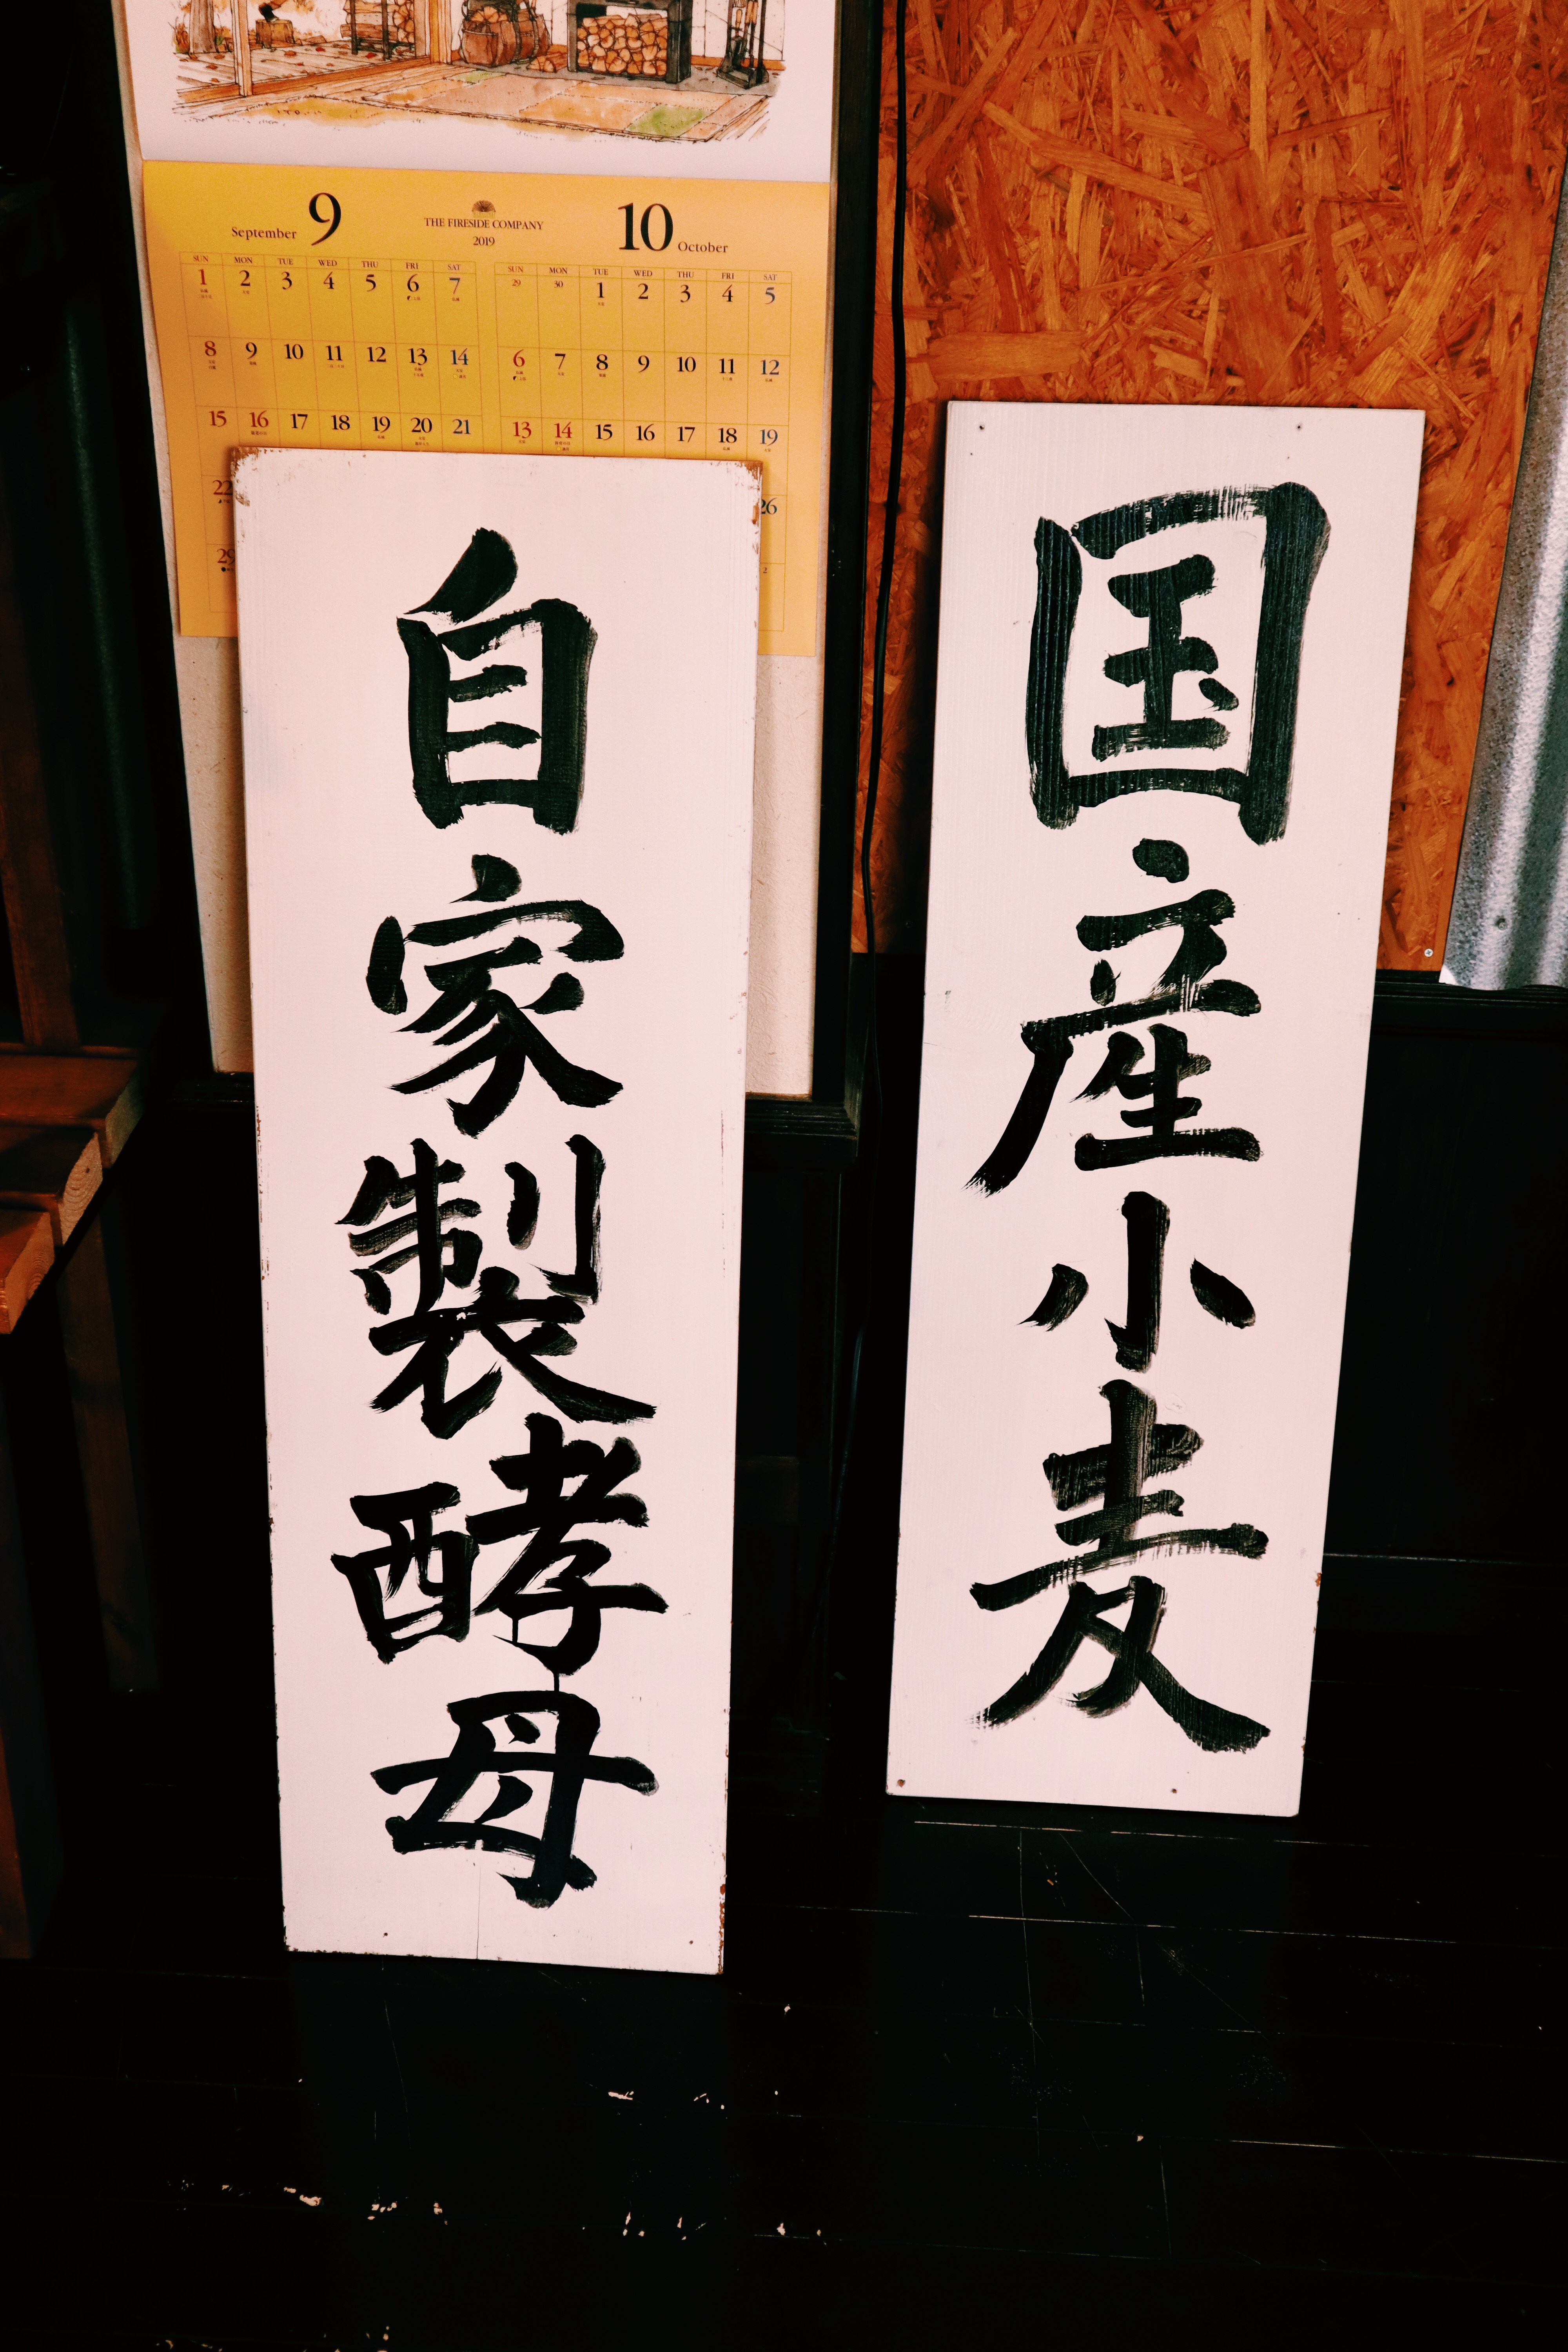 September 9
THE FIRESIDE COMPANY
2019
10 October
SUN MON TUE WED THU FRI SAT
1 2 3 4 5 6 7
8 9 10 11 12 13 14
15 16 17 18 19 20 21
22
29
SUN MON TUE WED THU FRI SAT
29 30 1 2 3 4 5
6 7 8 9 10 11 12
13 14 15 16 17 18 19
26
2
国産小麦
自家製酵母